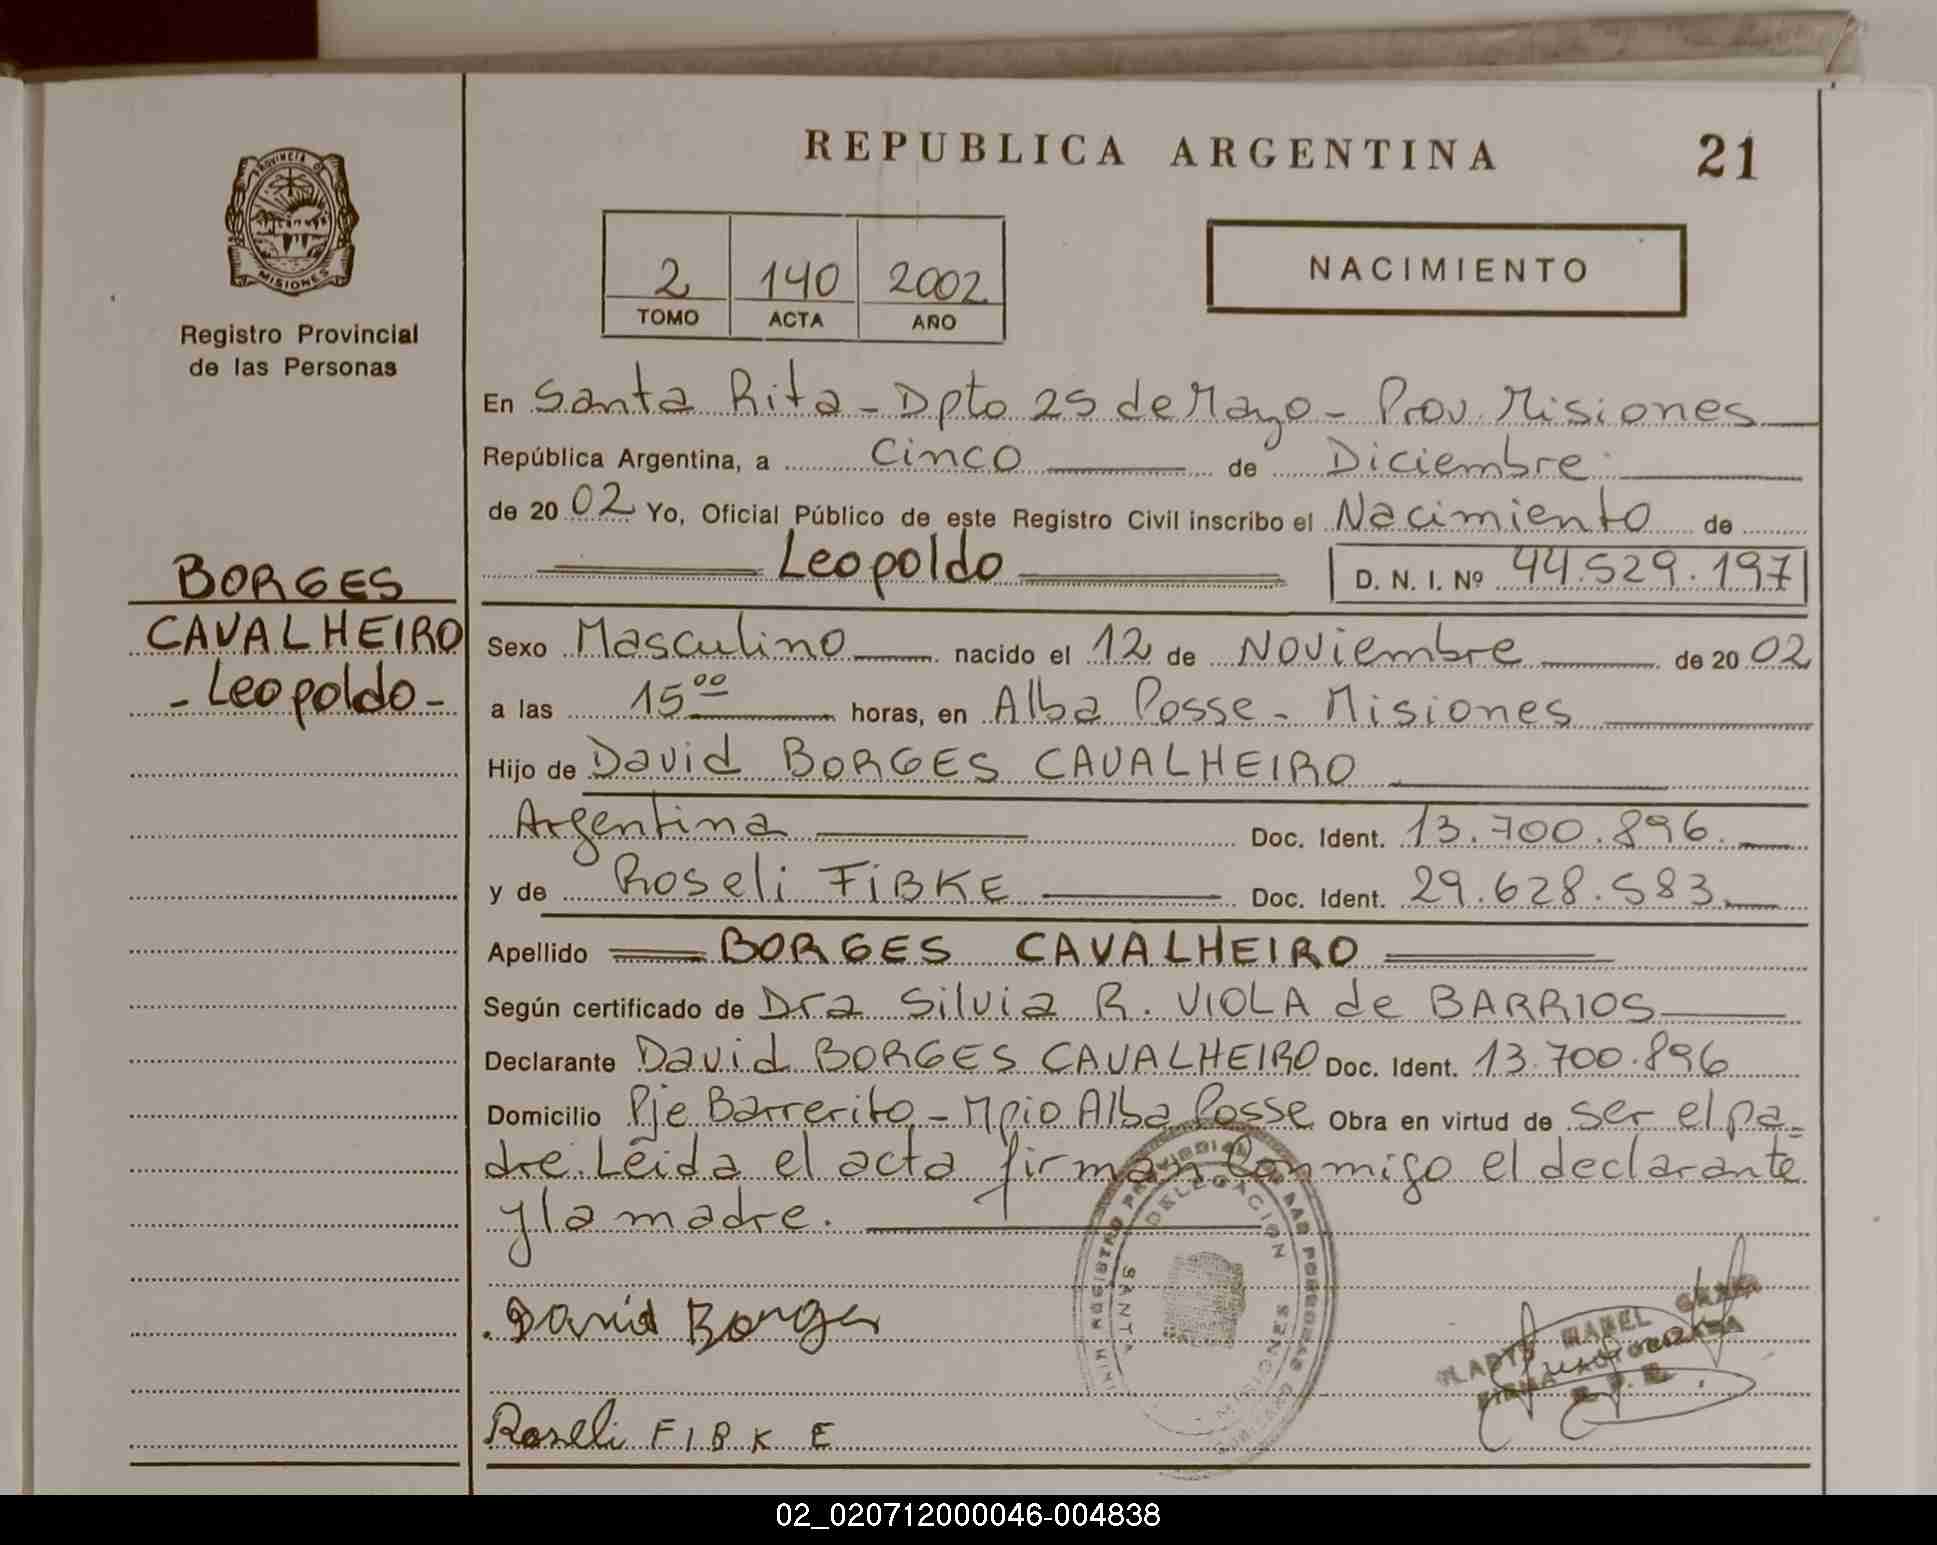 REPUBLICA ARGENTINA
21
PROVINCIA DE
MISIONES
Registro Provincial
de las Personas
2 140 2002
TOMO ACTA AÑO
NACIMIENTO
En Santa Rita - Dpto 25 de Mayo - Prov. Misiones
República Argentina, a cinco de Diciembre
de 2002 Yo, Oficial Público de este Registro Civil inscribo el Nacimiento de
Leopoldo D. N. I. Nº 44.529.197
BORGES
CAVALHEIRO
- Leopoldo -
Sexo Masculino nacido el 12 de Noviembre de 2002
a las 15 00 horas, en Alba Posse - Misiones
Hijo de David BORGES CAVALHEIRO
Argentina Doc. Ident. 13.700.896.
y de Roseli FIBKE Doc. Ident. 29.628.583.
Apellido BORGES CAVALHEIRO
Según certificado de Dra Silvia R. VIOLA de BARRIOS
Declarante David BORGES CAVALHEIRO Doc. Ident. 13.700.896
Domicilio Pje Barrerito - Mpio Alba Posse Obra en virtud de ser el pa=
dre. Leida el acta firman conmigo el declarante
y la madre.
REGISTRO PROVINCIAL DE LAS PERSONAS
DELEGACION
SANTA
MISIONES
David Borges
MABEL
Roseli FIBKE
02_020712000046-004838